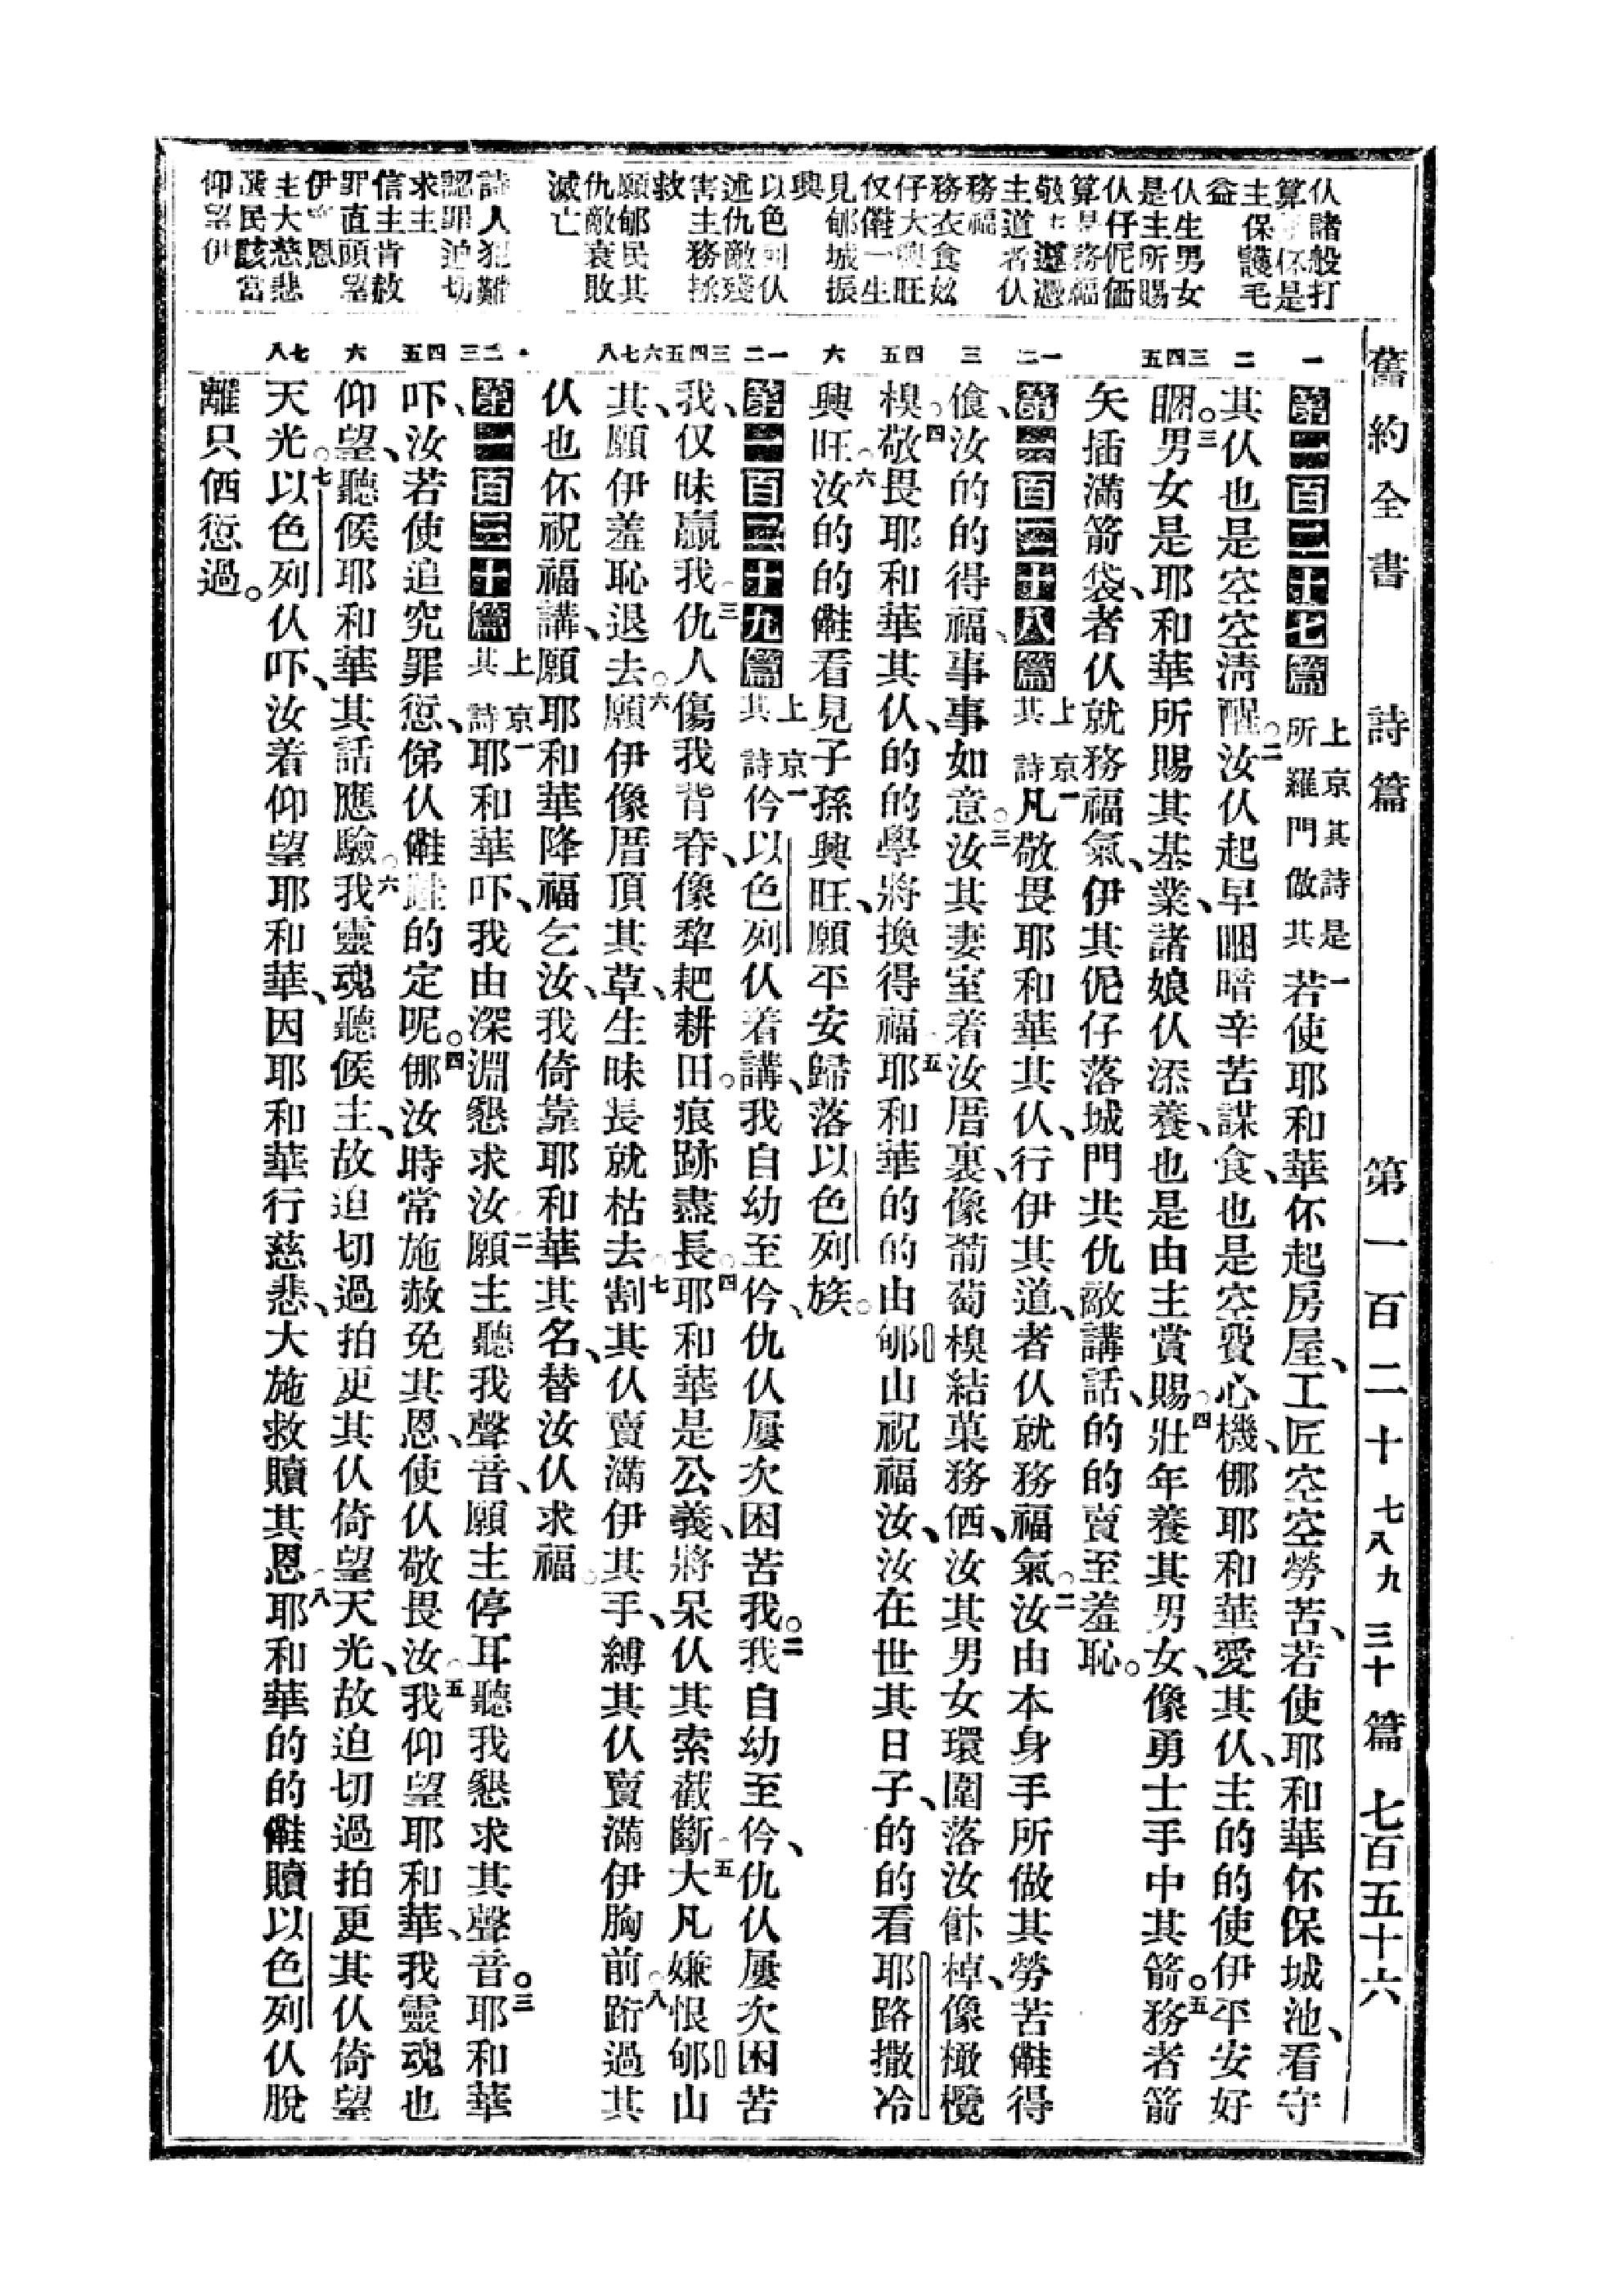 舊約全書 詩篇 第一百二十七八九 三十篇 七百五十六
仈諸般打
主保護毛
益
仈生男女
是主所賜
仈仔伲価
主道者仈
務福
務衣食妶
仔大興旺
仅𣍐一生
見郇城振
興
以色列仈
述仇敵殘
害主務拯
救
願郇民其
仇敵衰敗
滅亡
詩人犯難
認罪迫切
求主
信主肯赦
罪直頭望
主大慈悲
選民該當
仰望伊
一 二 三四五 一二 三 四五 六 一二 三四五六七八 二三 四五 六 七八
第一百二十七篇 上京其詩是一所羅門做其 若使耶和華伓起房屋、工匠空空勞苦、若使耶和華伓保城池、看守
其仈也是空空淸醒。二汝仈起早睏暗辛苦謀食、也是空費心機、㑚耶和華愛其仈、主的的使伊平安好
睏。三男女是耶和華所賜其基業、諸娘仈添養、也是由主賞賜。四壯年養其男女、像勇士手中其箭。五務者箭
矢插滿箭袋、者仈就務福氣、伊其伲仔落城門共仇敵講話、的的賣至羞恥。
第一百二十八篇 上京其一詩 凡敬畏耶和華其仈、行伊其道、者仈就務福氣。二汝由本身手所做其勞苦𣍐得
飡、汝的的得福、事事如意。三汝其妻室着汝厝裏、像葡萄模結菓務価、汝其男女環圍落汝飿棹、像橄欖
模。四敬畏耶和華其仈、的的學將換得福。五耶和華的的由郇山祝福汝、汝在世其日子、的的看耶路撒冷
興旺。六汝的的𣍐看見子孫興旺、願平安歸落以色列族。
第一百二十九篇 上京一其詩 伶以色列仈着講、我自幼至伶、仇仈屢次困苦我。二我自幼至伶、仇仈屢次困苦
我、仅昧贏我。三仇人傷我背脊、像犂耙耕田。痕跡盡長。四耶和華是公義、將呆仈其索截斷。五大凡嫌恨郇山
其、願伊羞恥退去。六願伊像厝頂其草、生昧長就枯去。七割其仈賣滿伊其手、縛其仈賣滿伊胸前。八跱過其
仈也伓祝福講、願耶和華降福乞汝、我倚靠耶和華其名、替汝仈求福。
第一百三十篇 上京一其詩 耶和華吓、我由深淵懇求汝。二願主聽我聲音、願主停耳聽我懇求其聲音。三耶和華
吓、汝若使追究罪愆、俤仈𣍐的定呢。四㑚汝時常施赦免其恩、使仈敬畏汝。五我仰望耶和華、我靈魂也
仰望、聽候耶和華其話應驗。六我靈魂聽候主、故迫切過拍更其仈倚望天光、故迫切過拍更其仈倚望
天光。七以色列仈吓、汝着仰望耶和華、因耶和華行慈悲、大施救贖其恩。八耶和華的的𣍐贖以色列仈脫
離只価愆過。